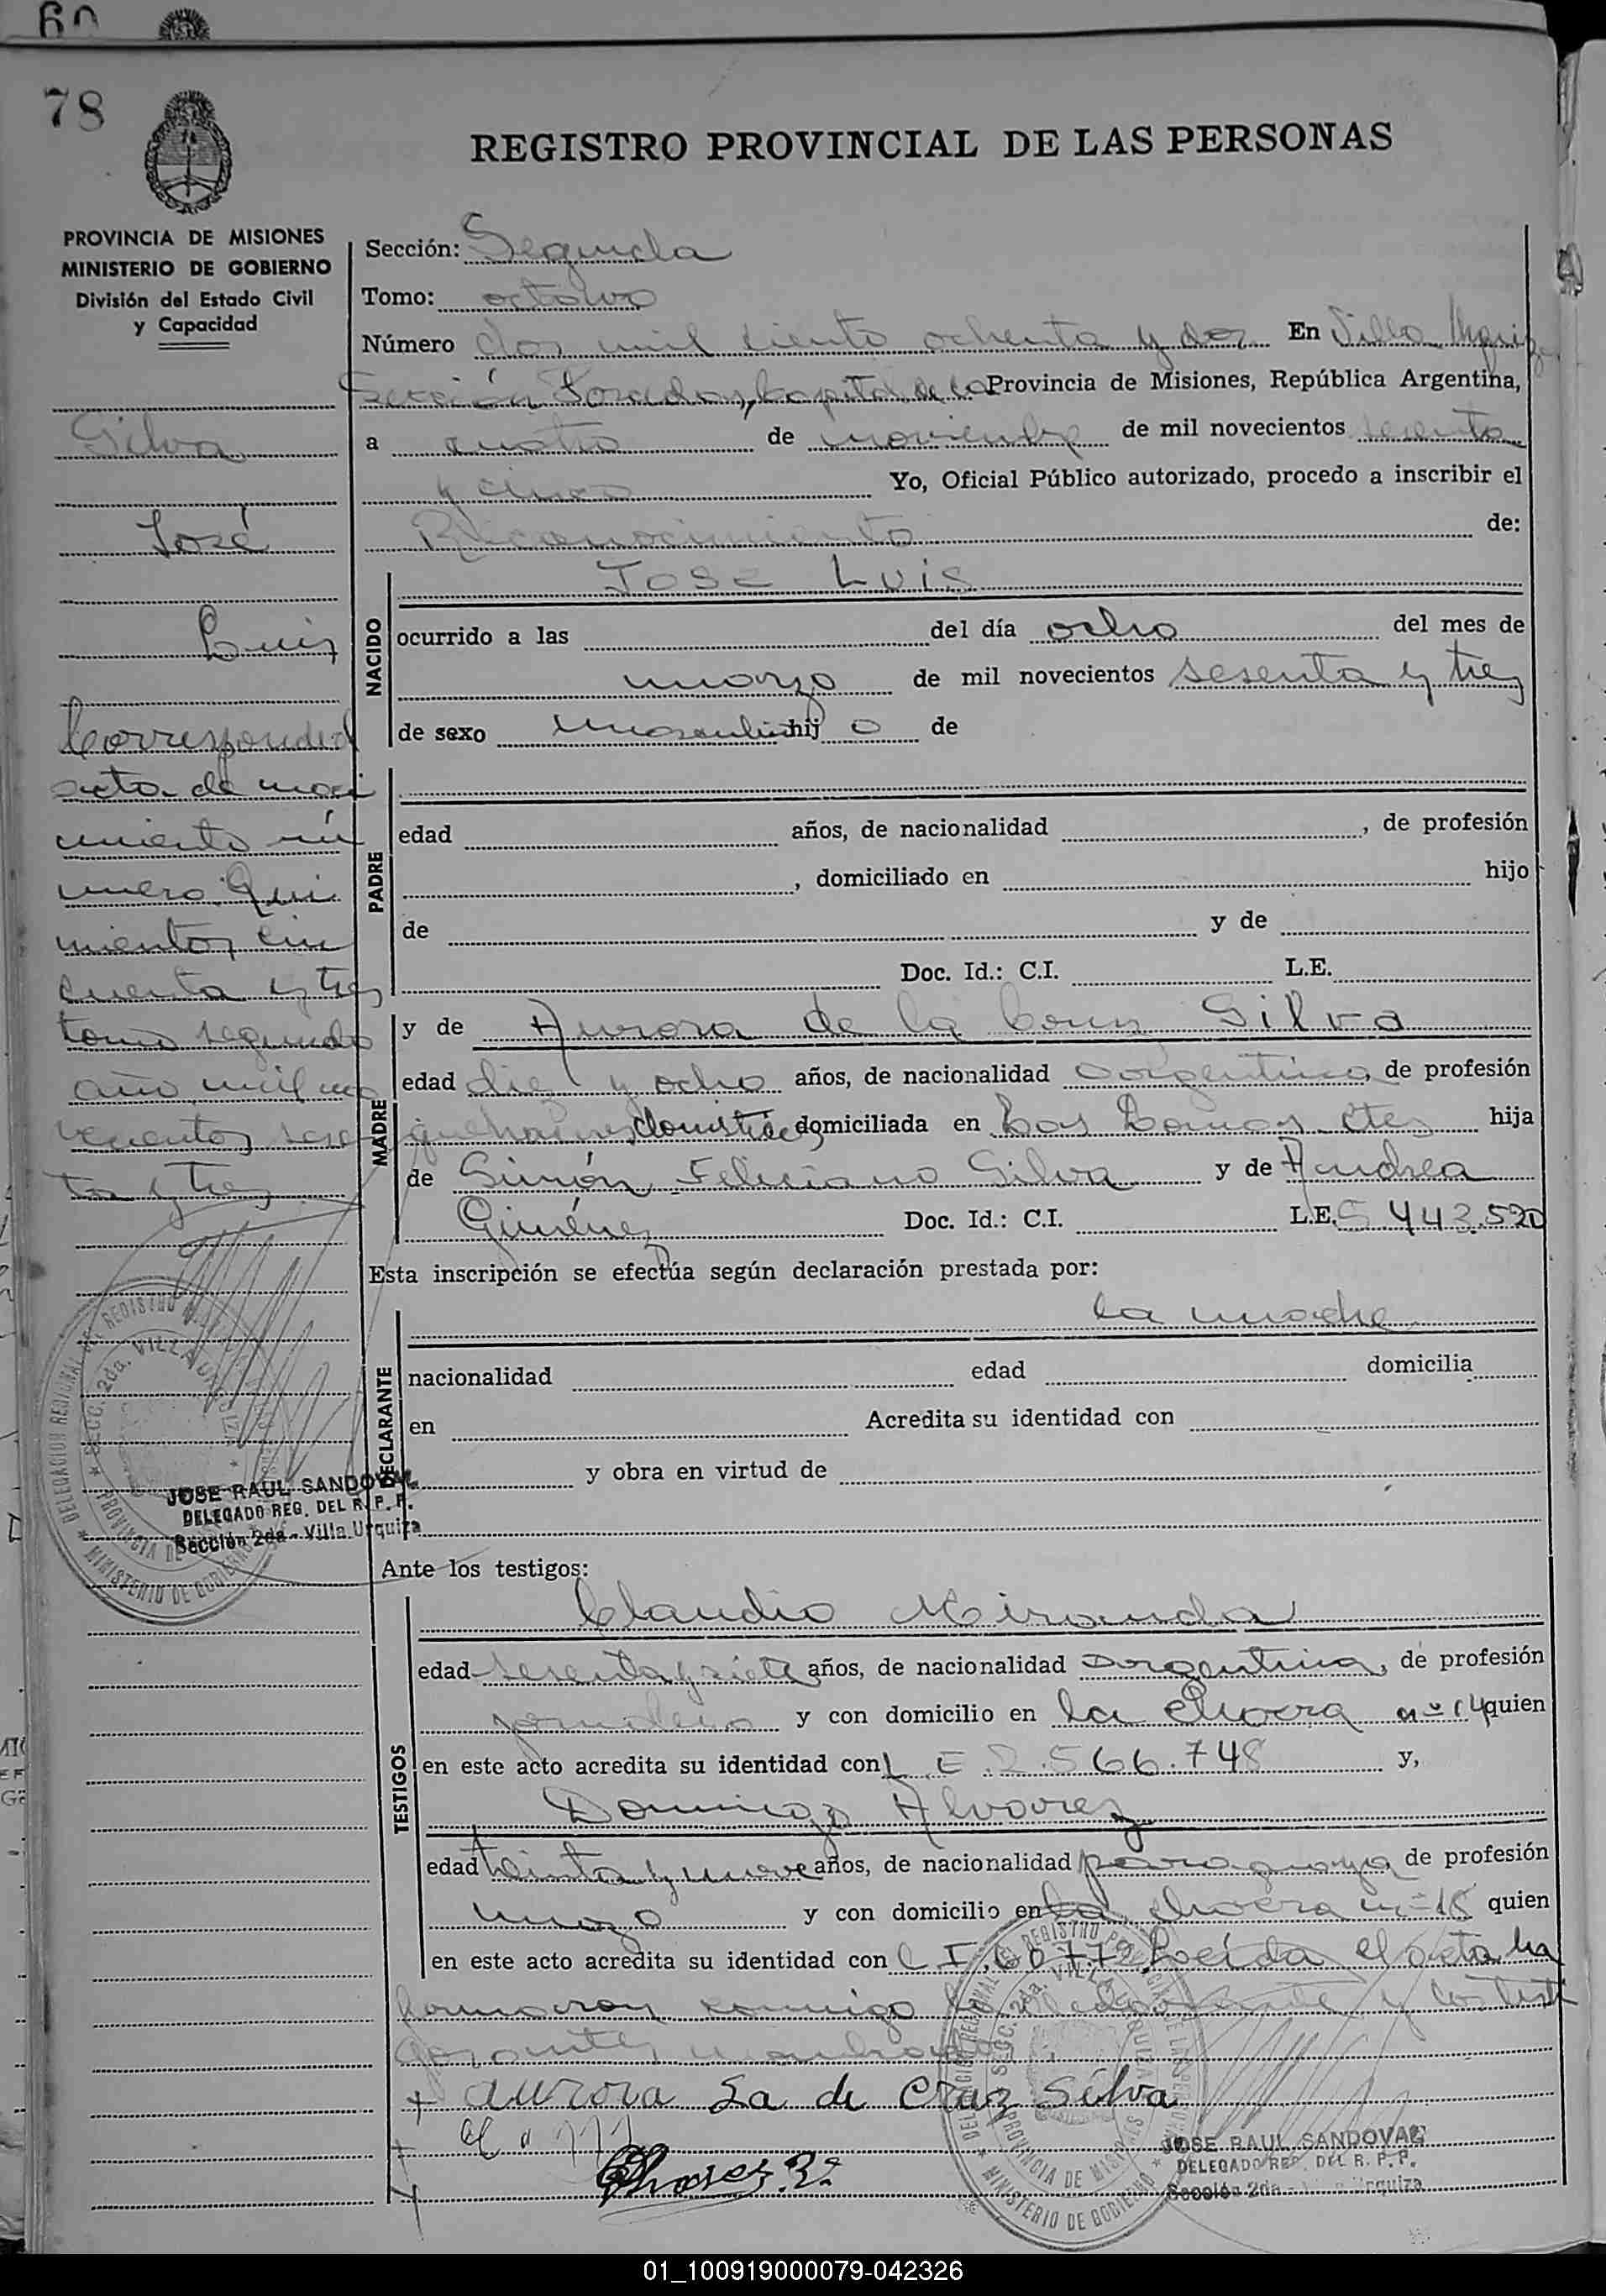 60
78
REGISTRO PROVINCIAL DE LAS PERSONAS
PROVINCIA DE MISIONES
MINISTERIO DE GOBIERNO
División del Estado Civil
y Capacidad
Silva
José
Luis
Sección: Segunda
Tomo: octavo
Número dos mil ciento ochenta y dos En Villa Urquiza
Sección Posadas, Capital de la Provincia de Misiones, República Argentina,
a cuatro de noviembre de mil novecientos sesenta
y cinco Yo, Oficial Público autorizado, procedo a inscribir el
Reconocimiento de:
NACIDO
JOSE LUIS
ocurrido a las del día ocho del mes de
marzo de mil novecientos sesenta y tres
de sexo masculino hijo de
PADRE
edad años, de nacionalidad , de profesión
, domiciliado en hijo
de y de
Doc. Id.: C.I. L.E.
MADRE
y de Aurora de la Cruz Silva
edad diez y ocho años, de nacionalidad argentina, de profesión
quehaceres domésticos domiciliada en Las Lomas Ctes hija
de Simón Feliciano Silva y de Andrea
Giménez Doc. Id.: C.I. L.E. 5.443.520
Correspond al
acta de naci
miento nú
mero Qui
nientos cin
cuenta y tres
tomo segundo
año mil no
vecientos sesen
ta y tres
Esta inscripción se efectúa según declaración prestada por:
DECLARANTE
la madre
nacionalidad edad domicilia
en Acredita su identidad con
y obra en virtud de
DELEGACION REGIONAL DEL REGISTRO
SECC. 2da. VILLA URQUIZA
PROVINCIA DE
MINISTERIO DE GOBIERNO
JOSE RAUL SANDOVAL
DELEGADO REG. DEL R. P. P.
Sección 2da - Villa Urquiza
Ante los testigos:
TESTIGOS
Claudio Miranda
edad sesenta y siete años, de nacionalidad argentina, de profesión
jornalero y con domicilio en la Chacra nº 14 quien
en este acto acredita su identidad con L.E. 2.566.748 y,
Domingo Alvarez
edad treinta y nueve años, de nacionalidad paraguaya, de profesión
mozo y con domicilio en la chacra nº 18 quien
en este acto acredita su identidad con C I. 60.772 Leída el acta la
firmaron conmigo la declarante y los testi
gos
+ aurora La de Cruz Silva
DELEGACION REGIONAL DEL REGISTRO PROVINCIAL DE LAS PERSONAS
SECC. 2da. VILLA URQUIZA
PROVINCIA DE MISIONES
MINISTERIO DE GOBIERNO
JOSE RAUL SANDOVAL
DELEGADO REG. DEL R. P. P.
Sección 2da - Urquiza
01_100919000079-042326